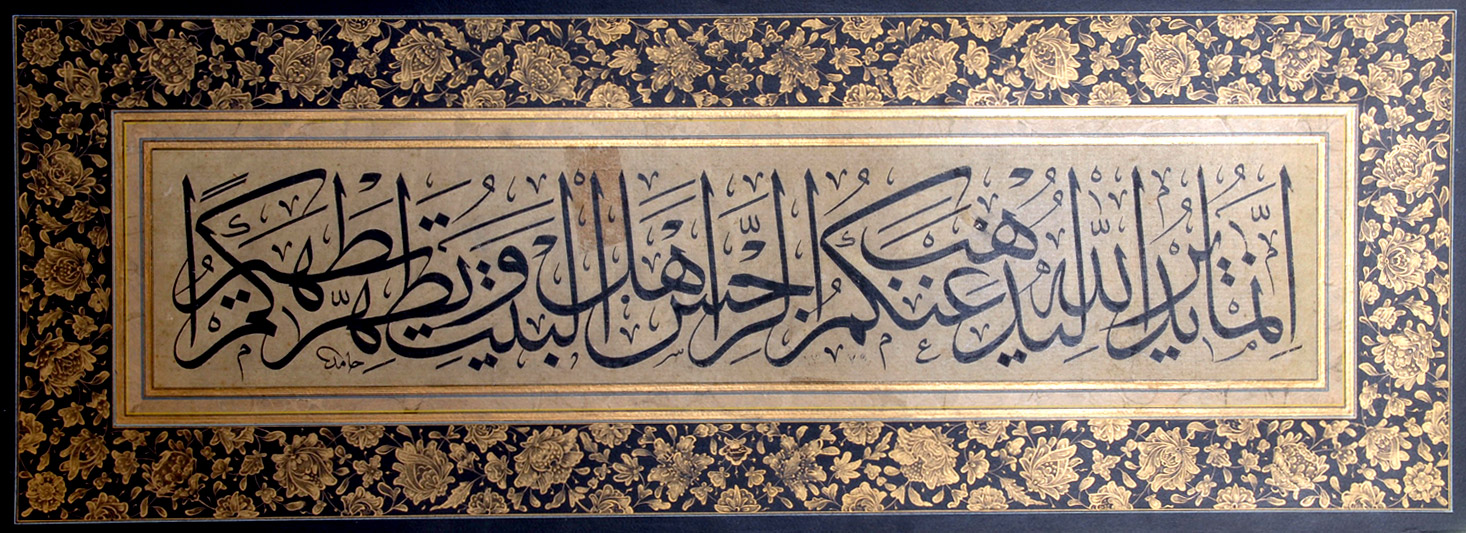 إنما يريد الله ليذهب عنكم الرجس أهل البيت ويطهركم تطهيرا
حامد